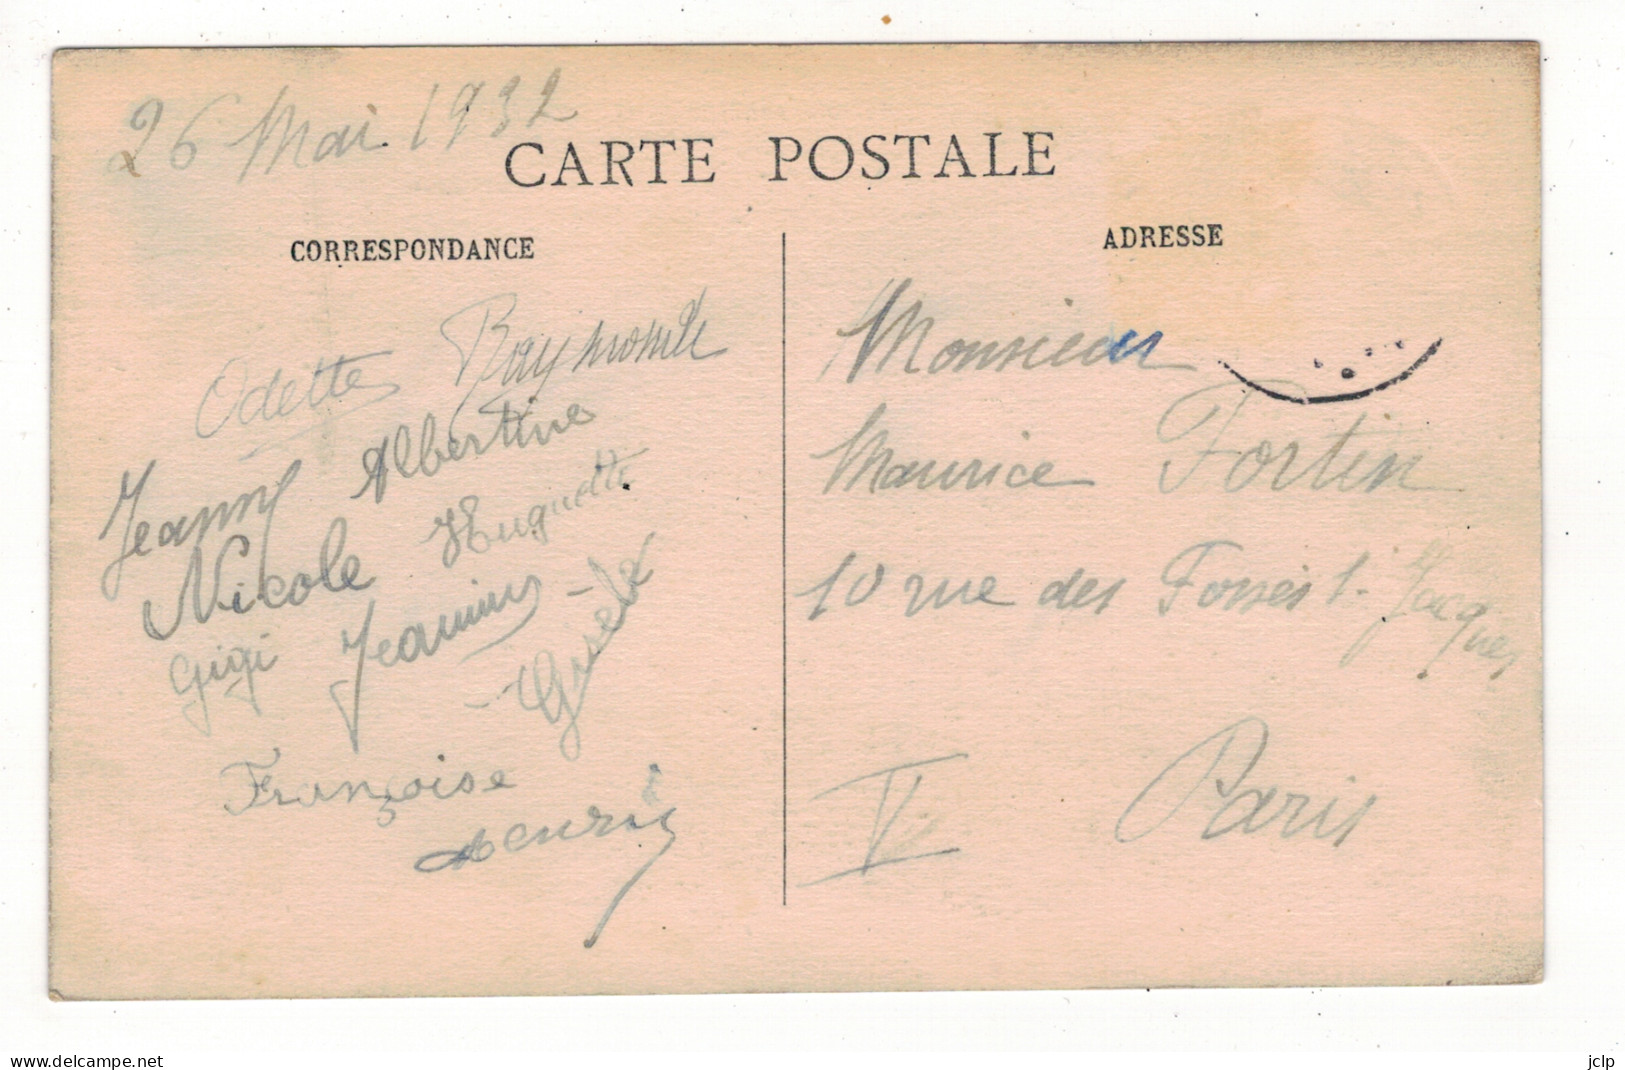 26 Mai 1932
CARTE POSTALE
CORRESPONDANCE
ADRESSE
Odette Raymonde
Jeanny Albertine
Nicole Huguette
Gigi Jeanine -
- Gisèle
Françoise
Henri
Monsieur
Maurice Fortin
10 rue des Fossés St. Jacques
V Paris
www.delcampe.net
jclp